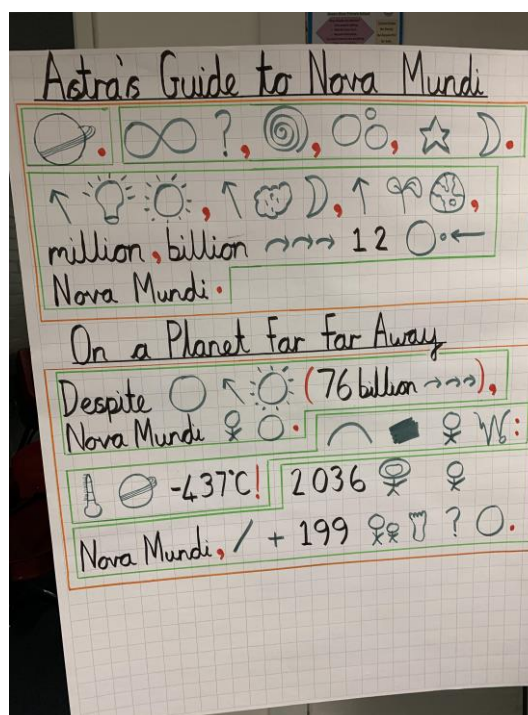 Astra's Guide to Nova Mundi
. ?, , , .
, , ,
million, billion 12
Nova Mundi.
On a Planet far far Away
Despite (76 billion ),
Nova Mundi . :
-437°C! 2036
Nova Mundi, / + 199 ? .